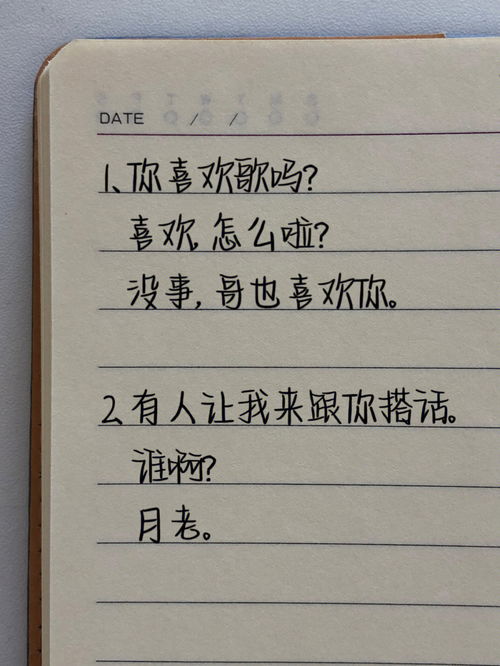 DATE / /
1、你喜欢歌吗?
喜欢,怎么啦?
没事,哥也喜欢你。
2、有人让我来跟你搭话。
谁啊?
月老。